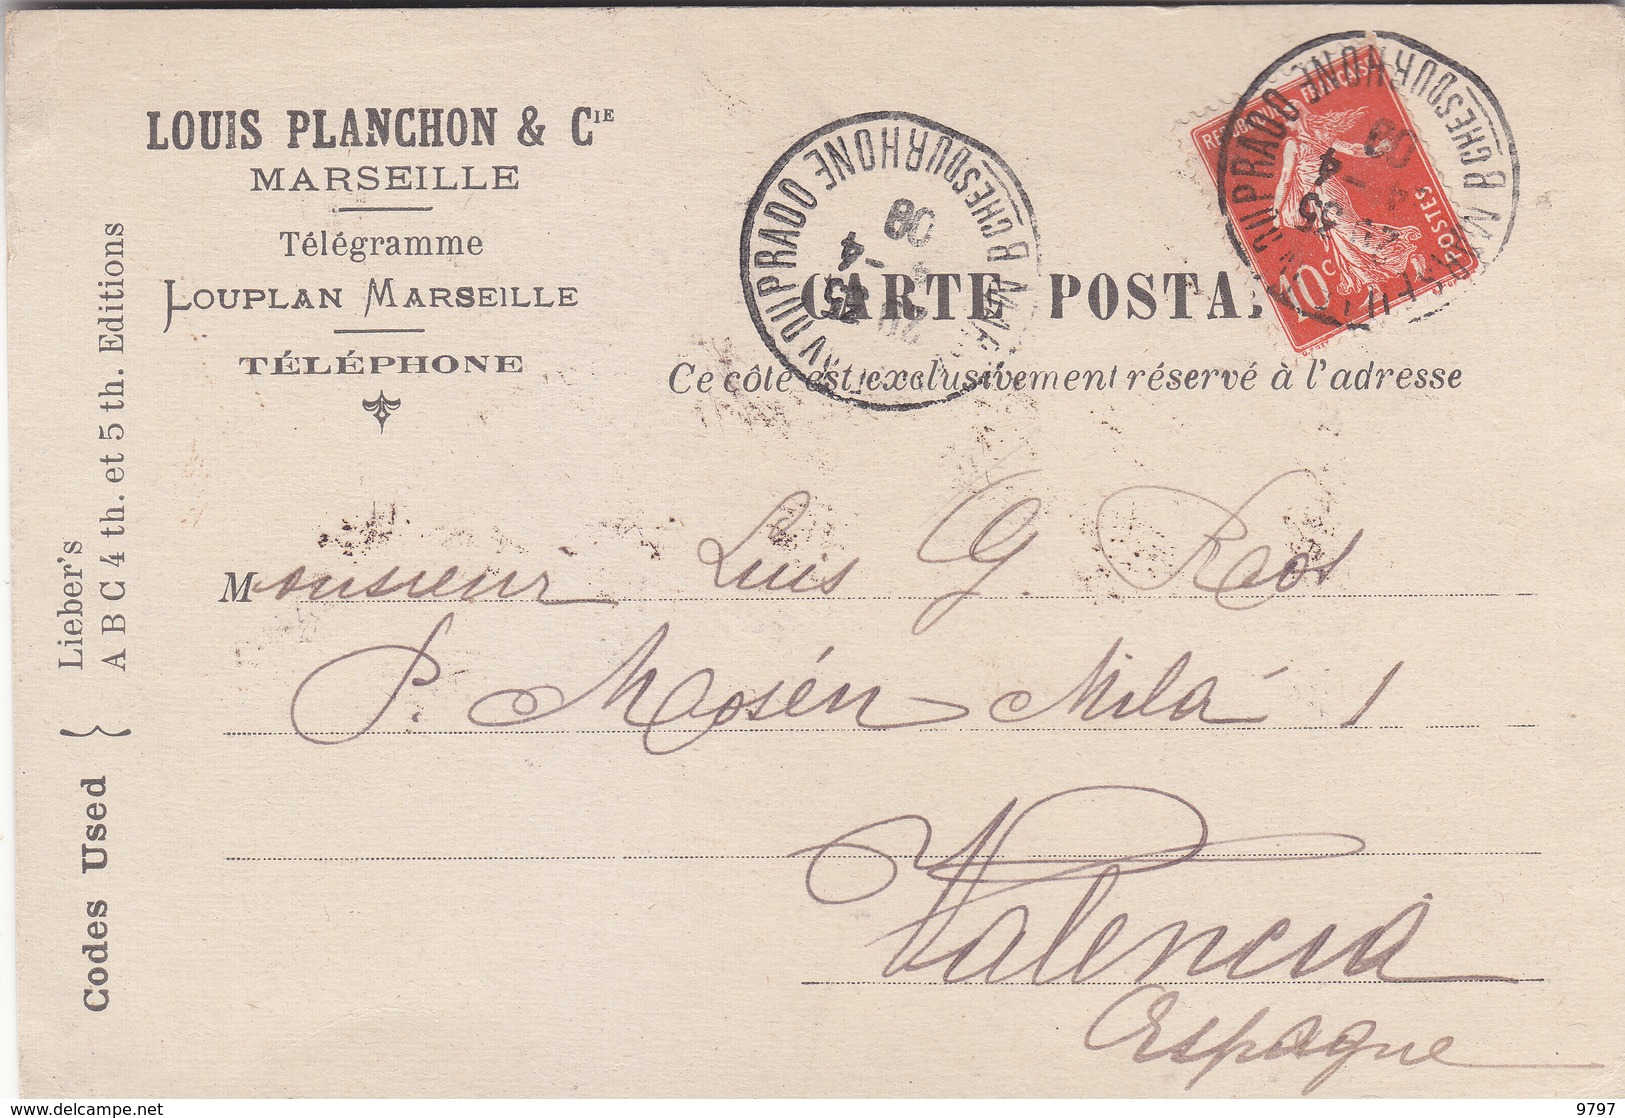 LOUIS PLANCHON & CIE
MARSEILLE
Télégramme
LOUPLAN MARSEILLE
TÉLÉPHONE
Codes Used { Lieber's
A B C 4 th. et 5 th. Editions
AV. DU PRADO BCHES DU RHONE
4 08
REPUBLIQUE FRANÇAISE
POSTES
10c
DU PRADO BCHES DU RHONE
CARTE POSTA
Ce côté est exclusivement réservé à l'adresse
Monsieur Luis G. Roos
P. Mosén Milá 1
Valencia
Espagne
www.delcampe.net
9797